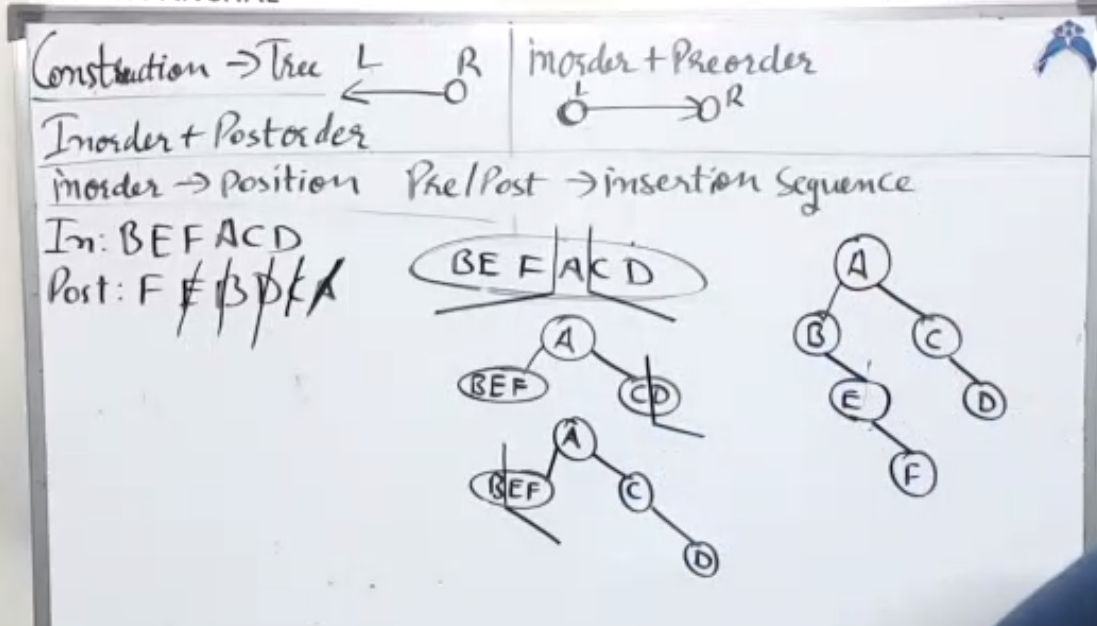 Construction → Tree L R
Inorder + Postorder
inorder + Preorder
L R
inorder → position Pre/Post → insertion sequence
In: B E F A C D
Post: F E B D C A
B E F A C D
A
B E F
C D
A
B E F
C
D
A
B
C
E
D
F